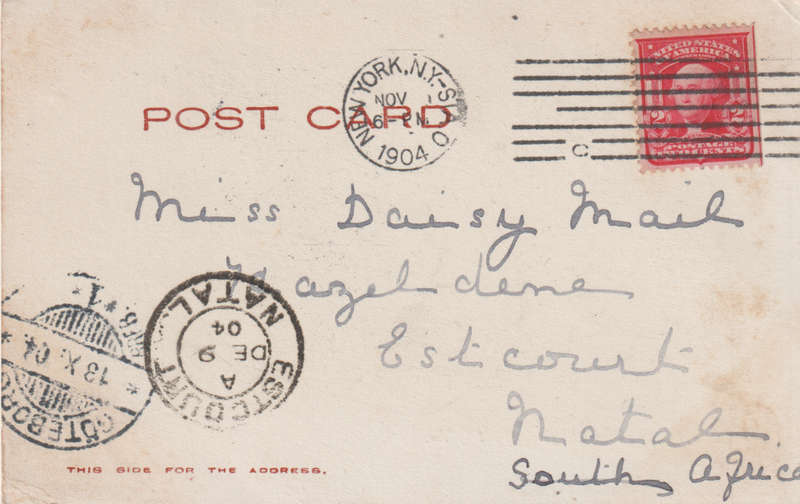 UNITED STATES
OF AMERICA
2 2
POSTAGE
TWO CENTS
NEW YORK, N.Y.
NOV
1904
C
POST CARD
Miss Daisy Mail
Hazeldene
Estcourt
Natal
South Africa
ESTCOURT
NATAL
A
DE 9
04
GÖTEBORG
THIS SIDE FOR THE ADDRESS.